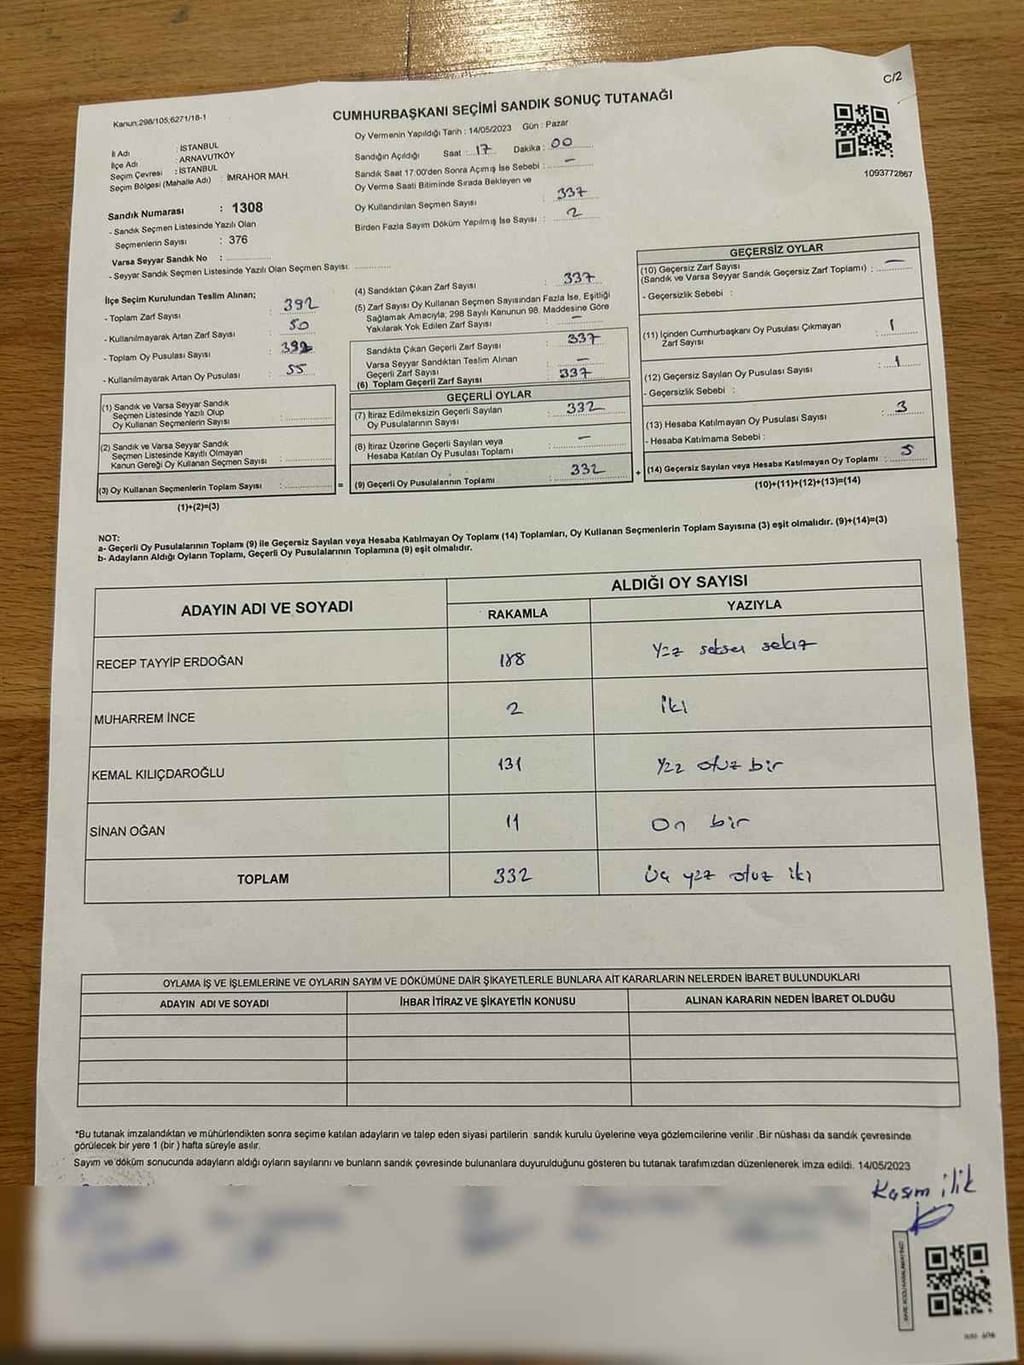 C/2
Kanun:298/105,6271/18-1
CUMHURBAŞKANI SEÇİMİ SANDIK SONUÇ TUTANAĞI
Oy Vermenin Yapıldığı Tarih : 14/05/2023 Gün : Pazar
İl Adı : İSTANBUL
İlçe Adı : ARNAVUTKÖY
Seçim Çevresi : İSTANBUL
Seçim Bölgesi (Mahalle Adı) : İMRAHOR MAH.
Sandık Numarası : 1308
- Sandık Seçmen Listesinde Yazılı Olan
Seçmenlerin Sayısı : 376
Varsa Seyyar Sandık No :
- Seyyar Sandık Seçmen Listesinde Yazılı Olan Seçmen Sayısı:
Sandığın Açıldığı Saat : 17 Dakika : 00
Sandık Saat 17:00'den Sonra Açımış İse Sebebi : –
Oy Verme Saati Bitiminde Sırada Bekleyen ve
Oy Kullandırılan Seçmen Sayısı : 337
Birden Fazla Sayım Döküm Yapılmış İse Sayısı : 2
1093772867
İlçe Seçim Kurulundan Teslim Alınan;
- Toplam Zarf Sayısı : 392
- Kullanılmayarak Artan Zarf Sayısı : 50
- Toplam Oy Pusulası Sayısı : 392
- Kullanılmayarak Artan Oy Pusulası : 55
(1) Sandık ve Varsa Seyyar Sandık
Seçmen Listesinde Yazılı Olup
Oy Kullanan Seçmenlerin Sayısı :
(2) Sandık ve Varsa Seyyar Sandık
Seçmen Listesinde Kayıtlı Olmayan
Kanun Gereği Oy Kullanan Seçmen Sayısı :
(3) Oy Kullanan Seçmenlerin Toplam Sayısı :
(1)+(2)=(3)
=
(4) Sandıktan Çıkan Zarf Sayısı : 337
(5) Zarf Sayısı Oy Kullanan Seçmen Sayısından Fazla İse, Eşitliği
Sağlamak Amacıyla, 298 Sayılı Kanunun 98. Maddesine Göre
Yakılarak Yok Edilen Zarf Sayısı : –
Sandıkta Çıkan Geçerli Zarf Sayısı : 337
Varsa Seyyar Sandıktan Teslim Alınan
Geçerli Zarf Sayısı : –
(6) Toplam Geçerli Zarf Sayısı : 337
GEÇERLİ OYLAR
(7) İtiraz Edilmeksizin Geçerli Sayılan
Oy Pusulasının Sayısı : 332
(8) İtiraz Üzerine Geçerli Sayılan veya
Hesaba Katılan Oy Pusulası Toplamı : –
(9) Geçerli Oy Pusulalarının Toplamı : 332
+
GEÇERSİZ OYLAR
(10) Geçersiz Zarf Sayısı
(Sandık ve Varsa Seyyar Sandık Geçersiz Zarf Toplamı) : –
- Geçersizlik Sebebi :
(11) İçinden Cumhurbaşkanı Oy Pusulası Çıkmayan
Zarf Sayısı : 1
(12) Geçersiz Sayılan Oy Pusulası Sayısı : 1
- Geçersizlik Sebebi :
(13) Hesaba Katılmayan Oy Pusulası Sayısı : 3
- Hesaba Katılmama Sebebi :
(14) Geçersiz Sayılan veya Hesaba Katılmayan Oy Toplamı : 5
(10)+(11)+(12)+(13)=(14)
NOT:
a- Geçerli Oy Pusulalarının Toplamı (9) ile Geçersiz Sayılan veya Hesaba Katılmayan Oy Toplamı (14) Toplamları, Oy Kullanan Seçmenlerin Toplam Sayısına (3) eşit olmalıdır. (9)+(14)=(3)
b- Adayların Aldığı Oyların Toplamı, Geçerli Oy Pusulalarının Toplamına (9) eşit olmalıdır.
ADAYIN ADI VE SOYADI ALDIĞI OY SAYISI
RAKAMLA YAZIYLA
RECEP TAYYİP ERDOĞAN 188 Yüz seksen sekiz
MUHARREM İNCE 2 iki
KEMAL KILIÇDAROĞLU 131 Yüz otuz bir
SİNAN OĞAN 11 On bir
TOPLAM 332 Üç yüz otuz iki
OYLAMA İŞ VE İŞLEMLERİNE VE OYLARIN SAYIM VE DÖKÜMÜNE DAİR ŞİKAYETLERLE BUNLARA AİT KARARLARIN NELERDEN İBARET BULUNDUKLARI
ADAYIN ADI VE SOYADI İHBAR İTİRAZ VE ŞİKAYETİN KONUSU ALINAN KARARIN NEDEN İBARET OLDUĞU
*Bu tutanak imzalandıktan ve mühürlendikten sonra seçime katılan adayların ve talep eden siyasi partilerin sandık kurulu üyelerine veya gözlemcilerine verilir .Bir nüshası da sandık çevresinde
görülecek bir yere 1 (bir ) hafta süreyle asılır.
Sayım ve döküm sonucunda adayların aldığı oyların sayılarını ve bunların sandık çevresinde bulunanlara duyurulduğunu gösteren bu tutanak tarafımızdan düzenlenerek imza edildi. 14/05/2023
Kasım ilik